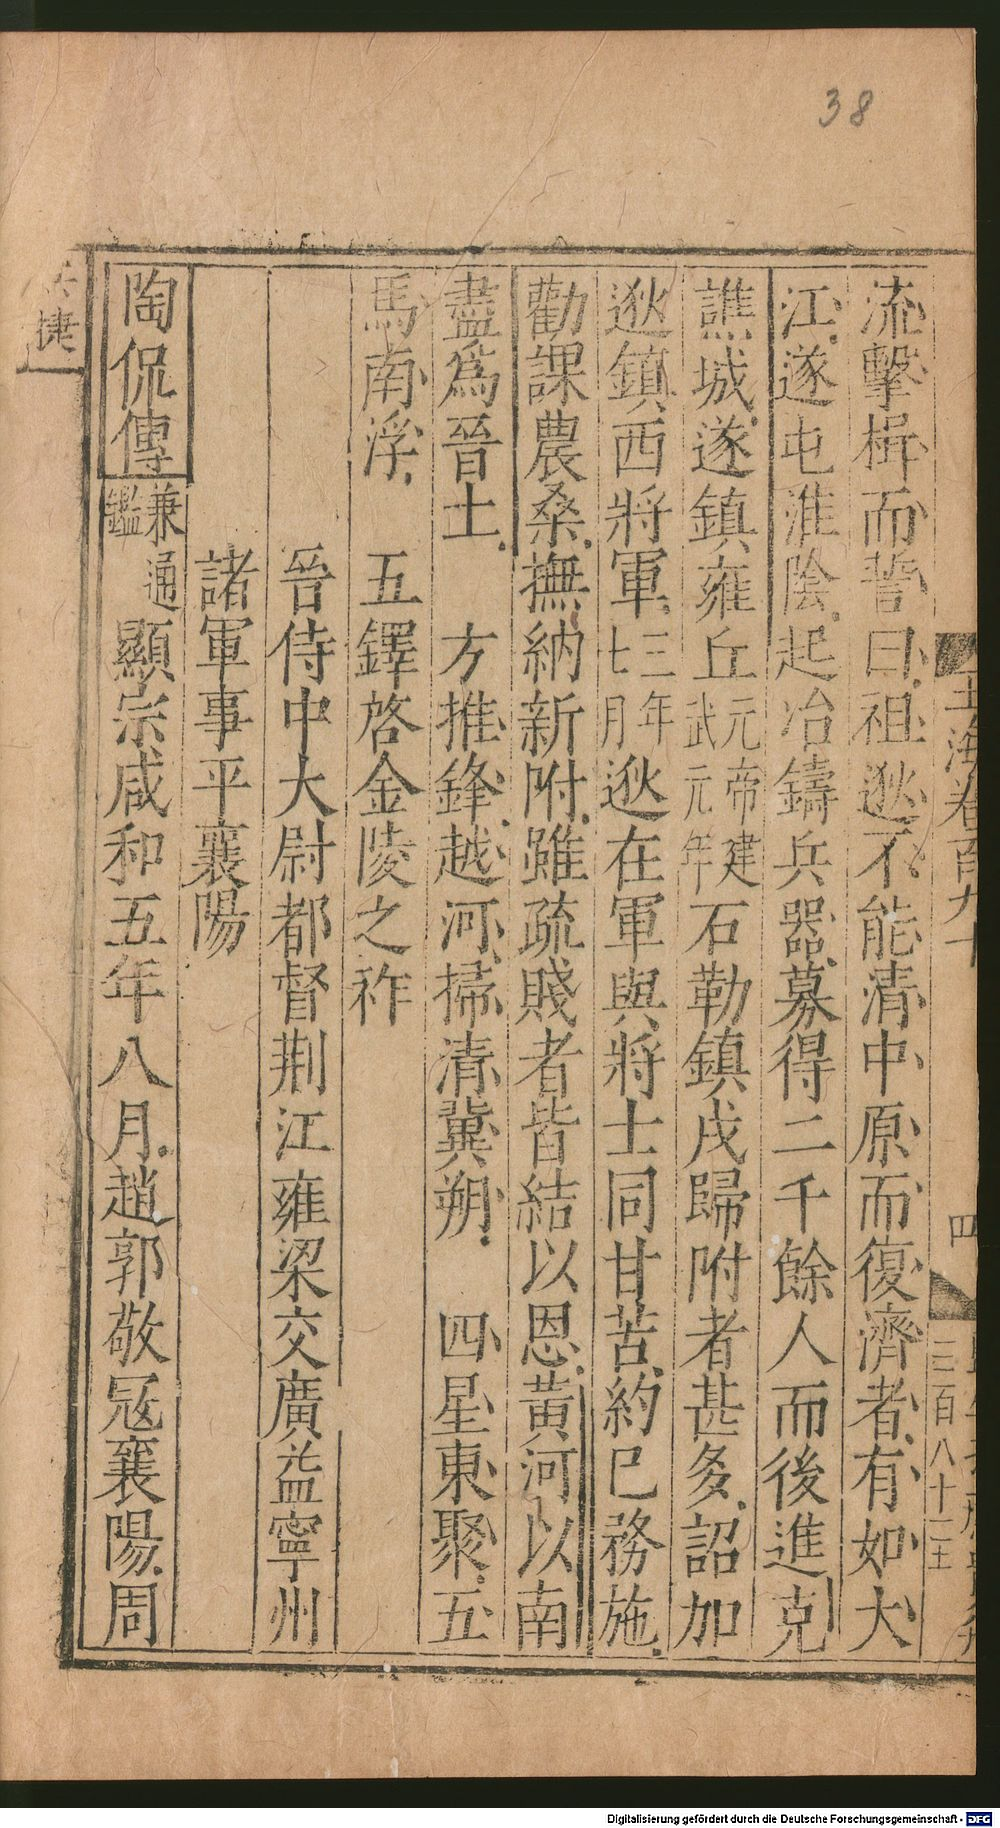 38
流擊楫而誓曰祖逖不能清中原而復濟者有如大
江遂屯淮陰起冶鑄兵器募得二千餘人而後進克
譙城遂鎮雍丘元帝建武元年石勒鎮戍歸附者甚多詔加
逖鎮西將軍三年七月逖在軍與將士同甘苦約已務施
勸課農桑撫納新附雖疏賤者皆結以恩黃河以南
盡爲晉土 方推鋒越河掃清冀朔 四星東聚五
馬南浮 五鐸啓金陵之祚
晉侍中大尉都督荆江雍梁交廣益寧州
諸軍事平襄陽
陶侃傳兼通鑑顯宗咸和五年八月趙郭敬寇襄陽周
玉海卷百九十
四
三百八十二
捷
Digitalisierung gefördert durch die Deutsche Forschungsgemeinschaft - DFG